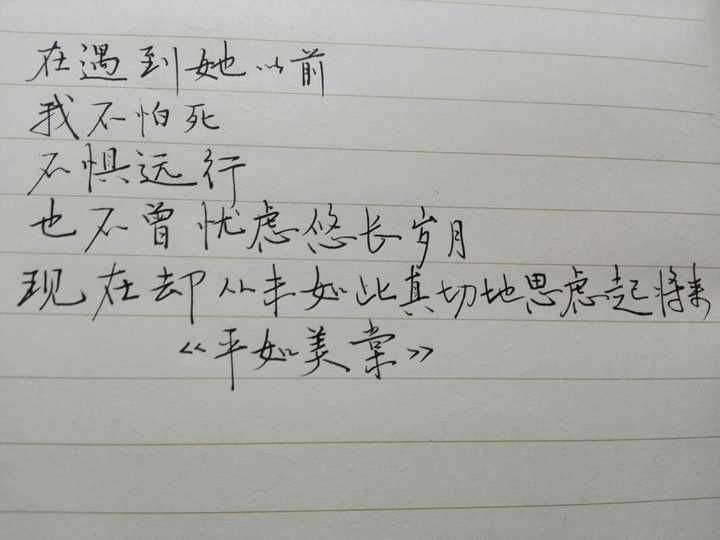 在遇到她以前
我不怕死
不惧远行
也不曾忧虑悠长岁月
现在却从未如此真切地思虑起将来
《平如美棠》